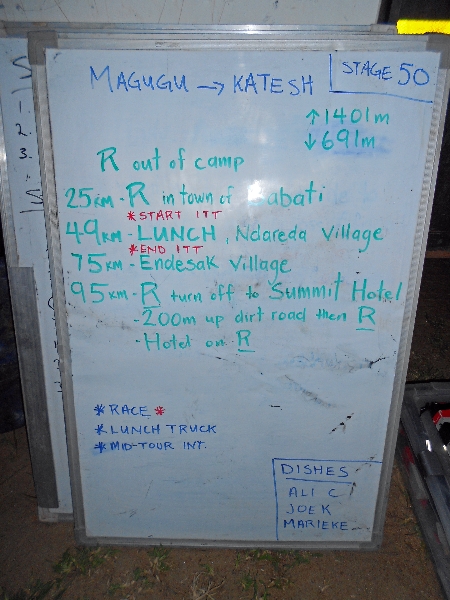 MAGUGU → KATESH
STAGE 50
↑1401m
↓691m
R out of camp
25KM - R in town of Babati
*START ITT
49KM - LUNCH, Ndareda Village
*END ITT
75KM - Endesak Village
95KM - R turn off to Summit Hotel
- 200m up dirt road then R
- Hotel on R
*RACE*
*LUNCH TRUCK
*MID-TOUR INT.
DISHES
ALI C
JOE K
MARIEKE
1.
2.
3.